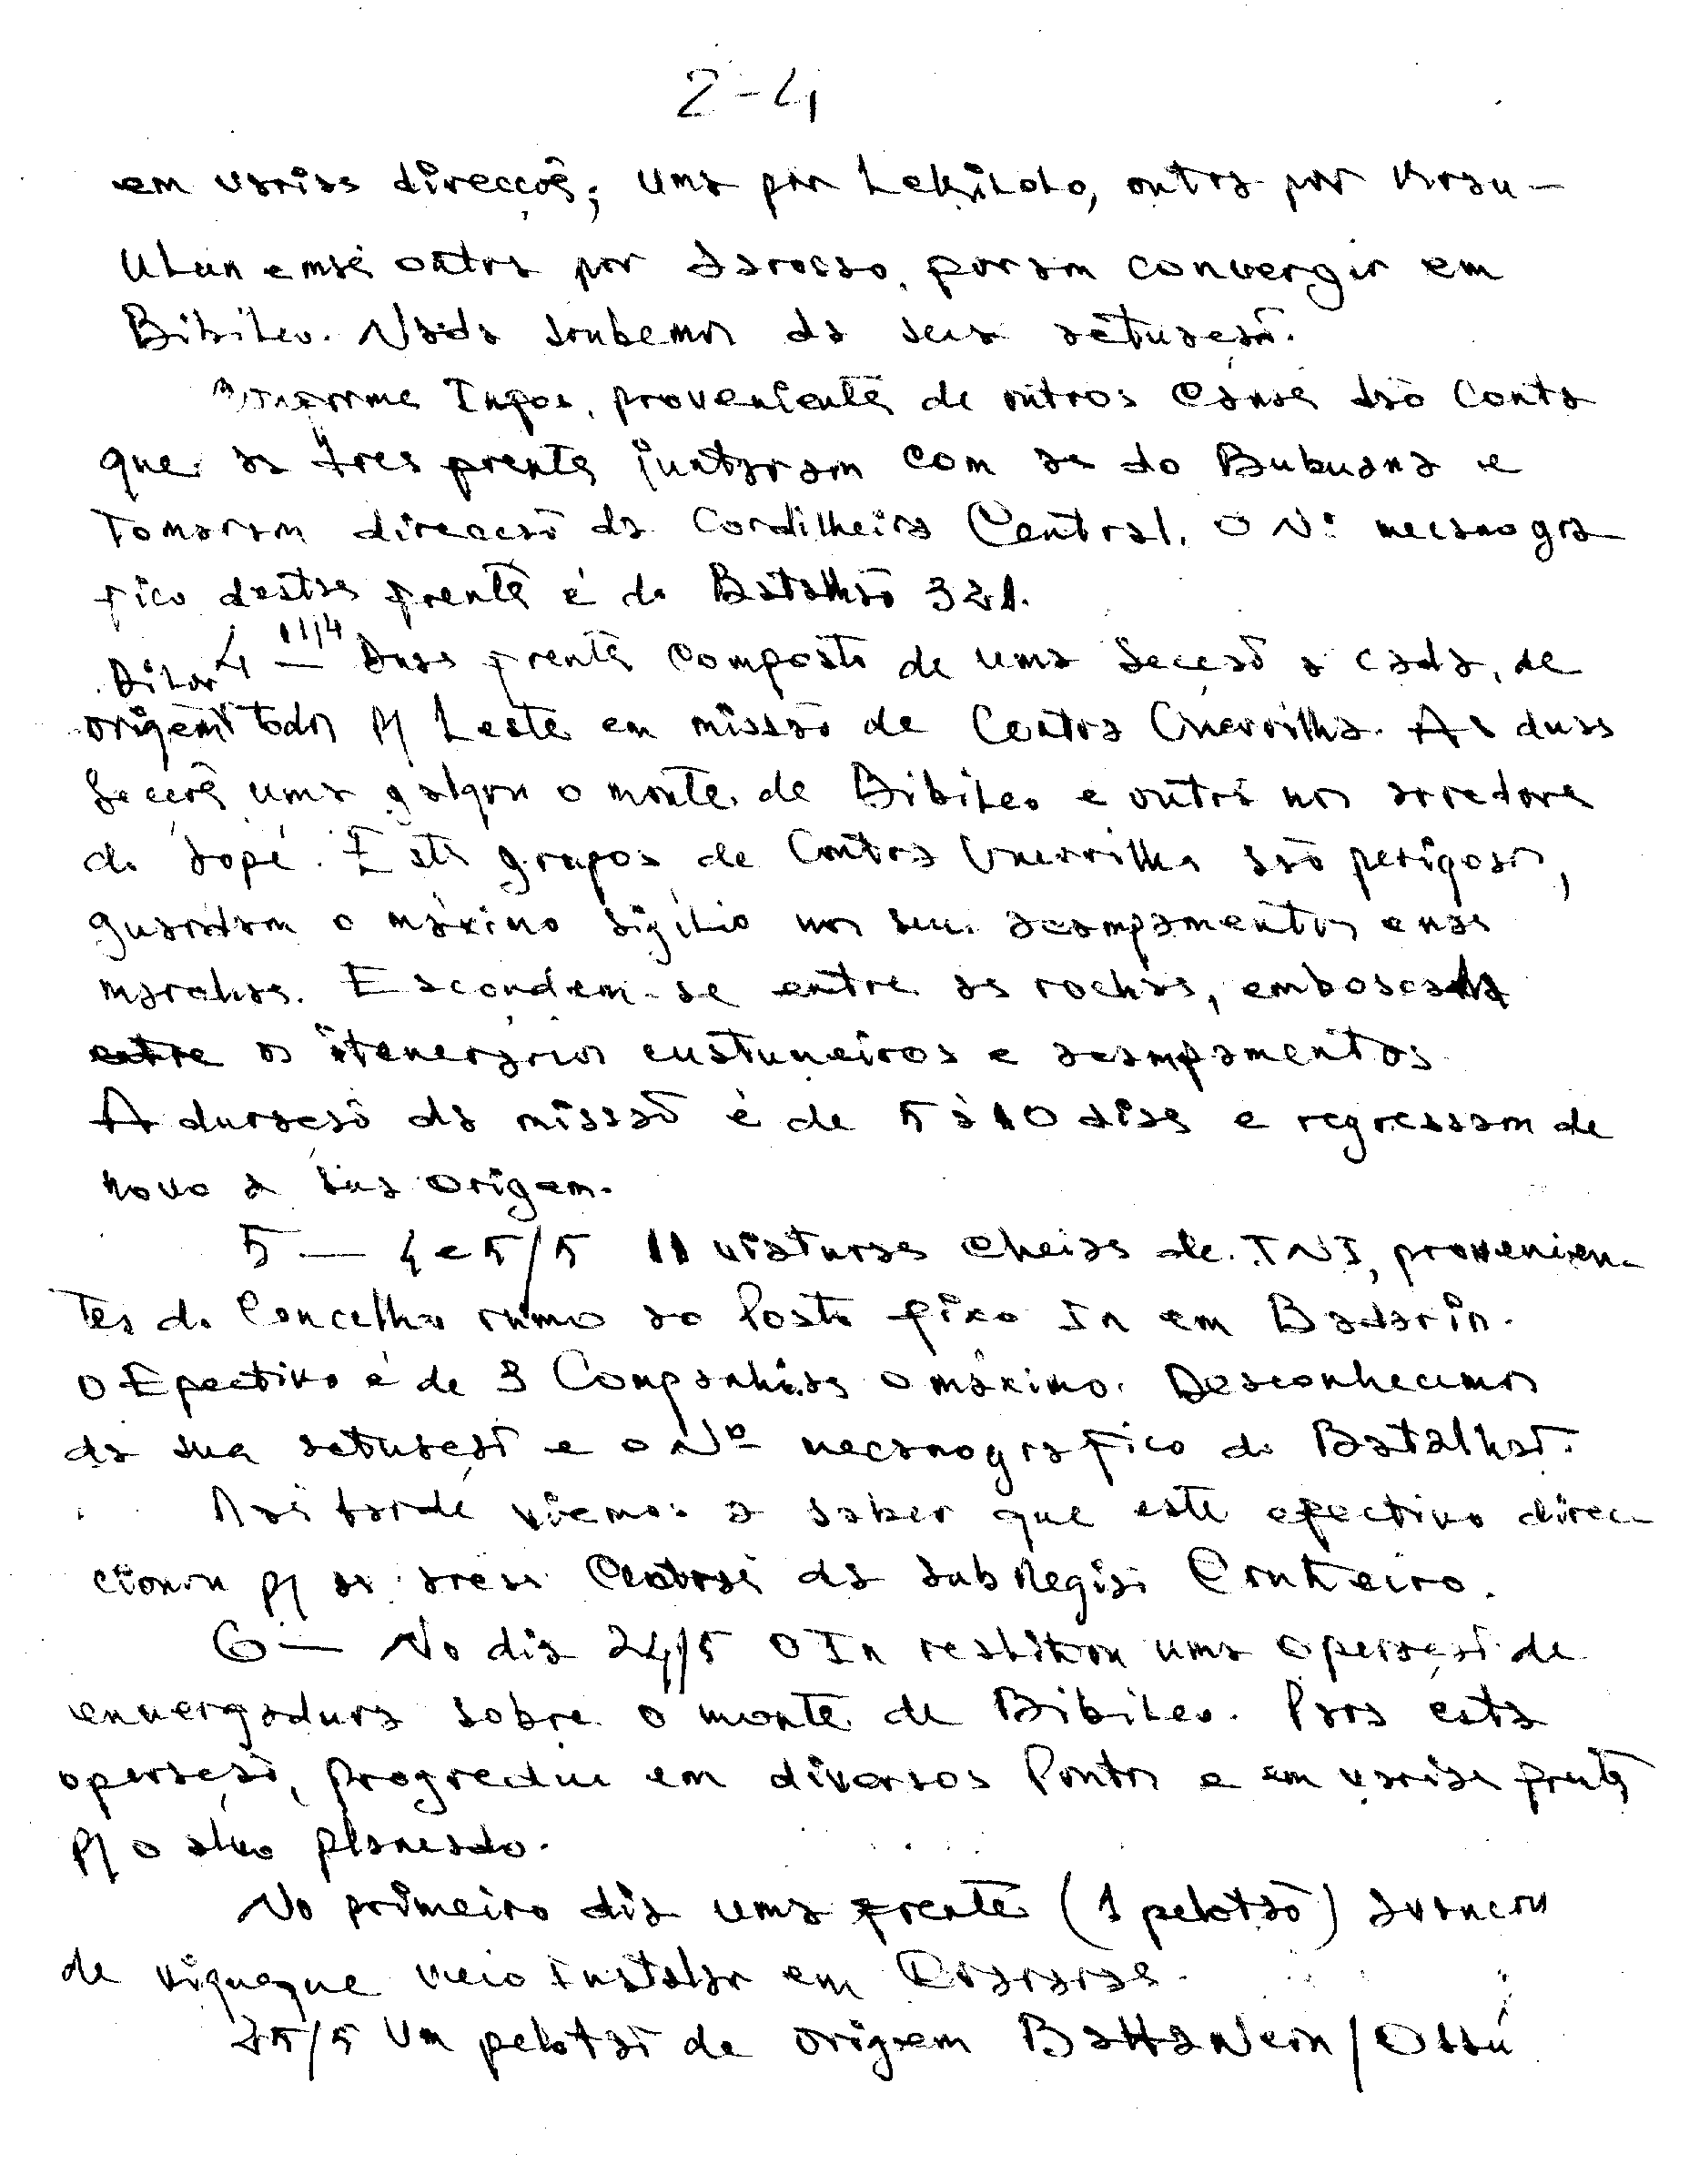 2-4
em varias direcçoẽs; uma por Lekiloho, outra por Krau-
Ulun e mais outra por Sarosao, foram convergir em
Bibileo. Nada soubemos da sua actuação.
Conforme Infos. provenientes de outros canais dão conta
que as tres frentes juntaram com as do Bubuana e
tomaram direcção da Cordilheira Central. O Nº mecanogra
fico destas frentes é do Batalhão 321.
4 — 11/4 Duas frentes composto de uma Secção a cada, de
origem todos p/ Leste em missão de Contra Guerrilha. As duas
Secções uma galgou o monte de Bibileo e outra nos arredores
do sopé. Estes grupos de Contra Guerrilha são perigosos,
guardam o máximo sigilio nos seus acampamentos e nas
marchas. Escondem-se entre as rochas, emboscada
entre os itenerarios custumeiros e acampamentos.
A duração da missão é de 5 à 10 dias e regressam de
novo a sua origem.
5 — 4 e 5/5 11 viaturas cheias de TNI, provenien-
tes do Concelho rumo ao Posto fixo In em Badarin.
O Efectivo é de 3 Companhias o máximo. Desconhecemos
da sua actuação e o Nº mecanografico do Batalhão.
Mais tarde viemos a saber que este efectivo direc-
cionou p/ as areas Centrais da Sub Região Cruzeiro.
6 — No dia 24/5 O In realizou uma operação de
envergadura sobre o monte de Bibileo. Para esta
operação, progrediu em diversos Pontos e em varias frentes
p/ o alvo planeado.
No primeiro dia uma frente (1 pelotão) avançou
de Viqueque veio instalar em
25/5 Um pelotão de origem /Ossú